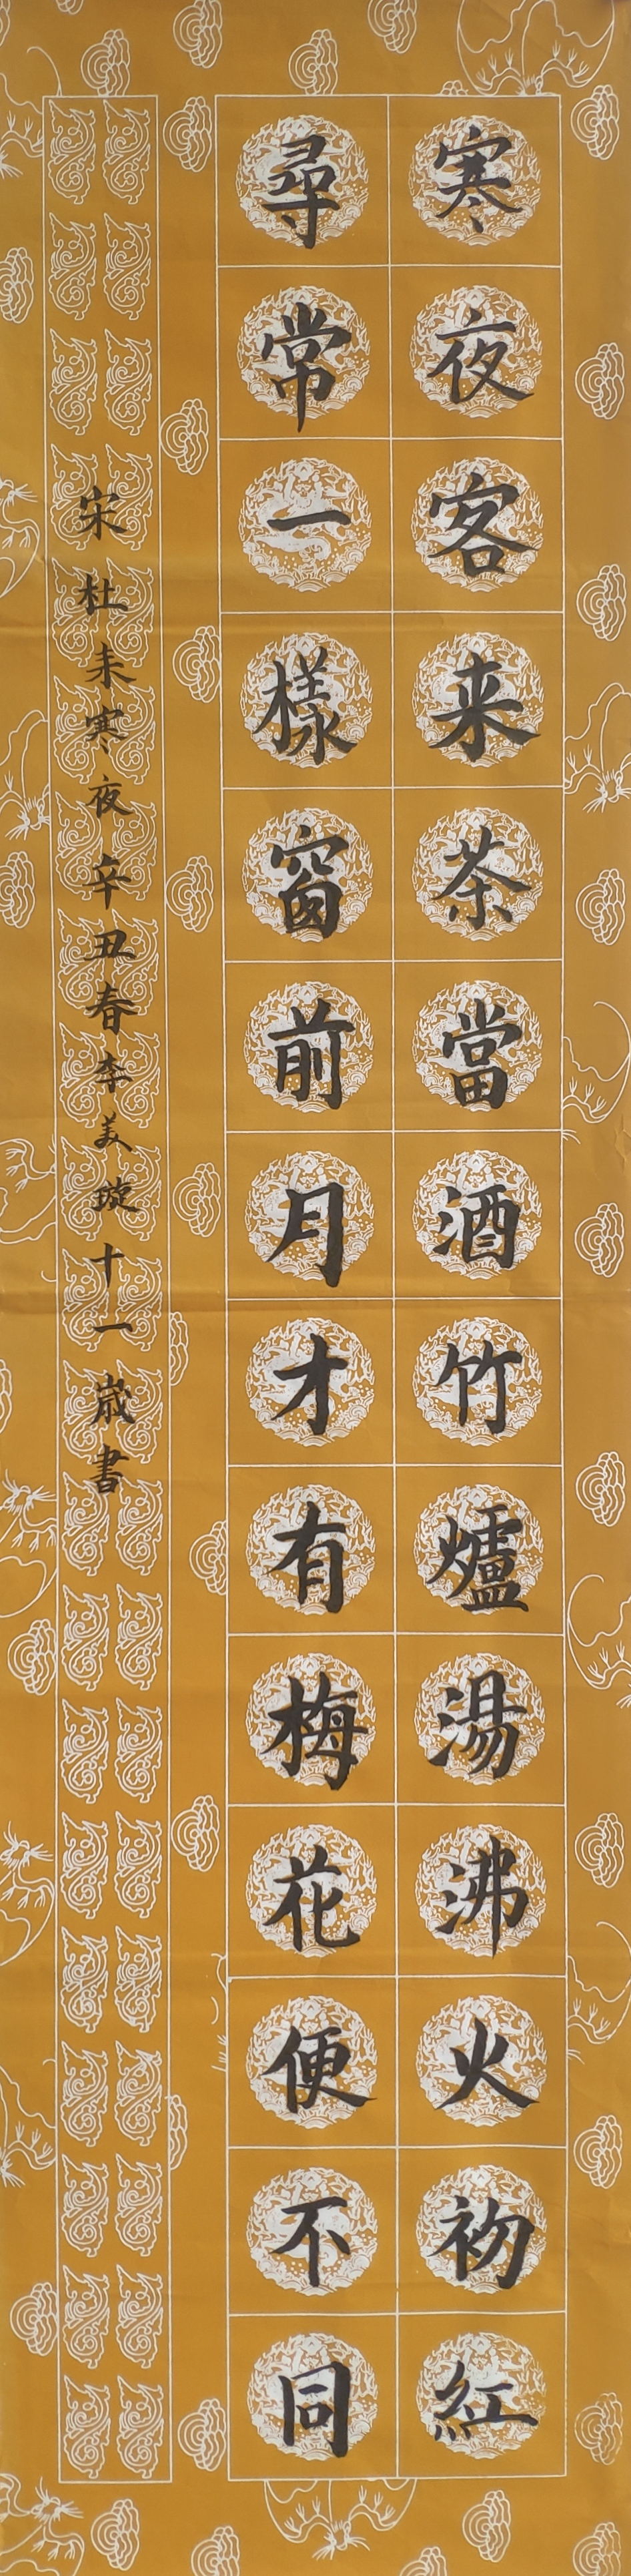 寒夜客来茶當酒竹爐湯沸火初紅
尋常一樣窗前月才有梅花便不同
宋杜耒寒夜辛丑春李美璇十一歲書